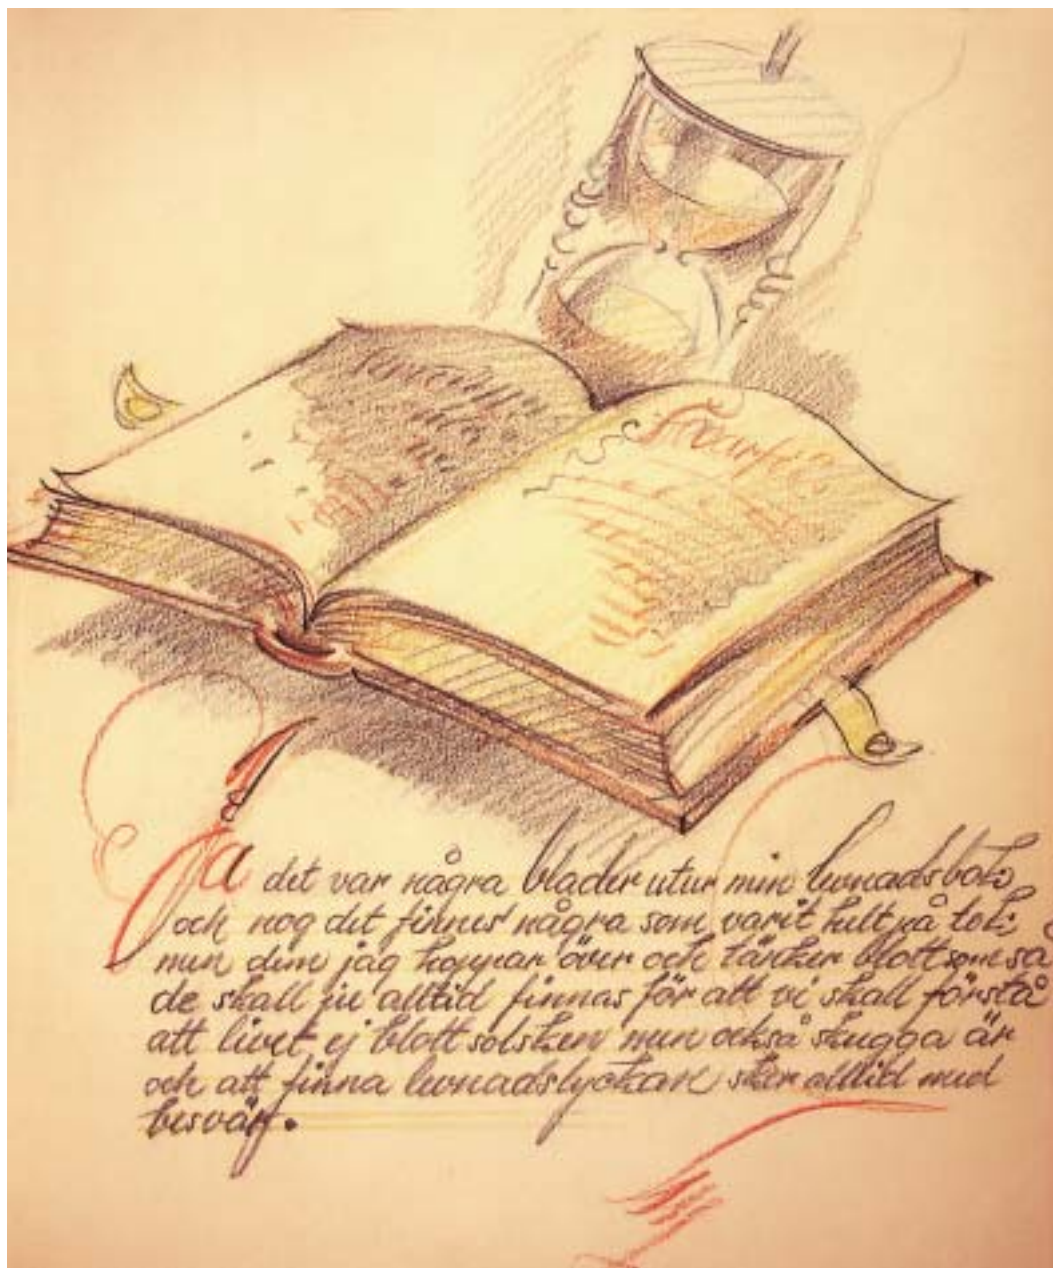 Ja det var några blader utur min levnadsbok
och nog det finnes några som varit helt på tok;
men dem jag hoppar över och tänker blott som så
de skall ju alltid finnas för att vi skall förstå
att livet ej blott solsken men också skugga är
och att finna levnadslyckan sker alltid med
besvär.